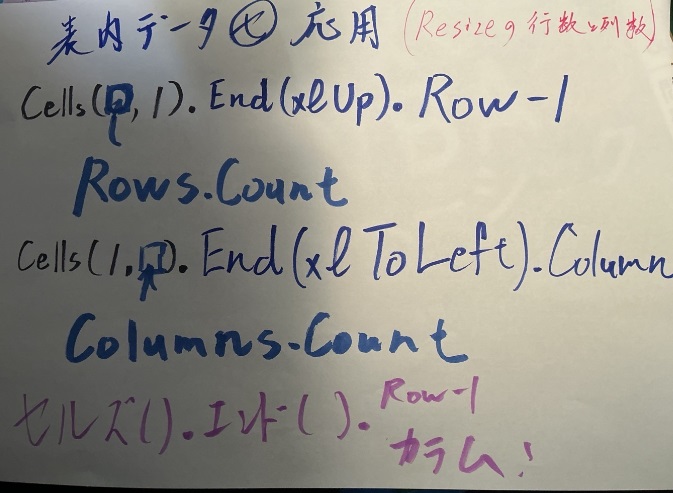 表内データ㋥ 応用 (Resizeの行数と列数)
Cells(□, 1).End(xlUp).Row-1
Rows.Count
Cells(1,□).End(xlToLeft).Column
Columns.Count
セルズ().エンド().Row-1
カラム!